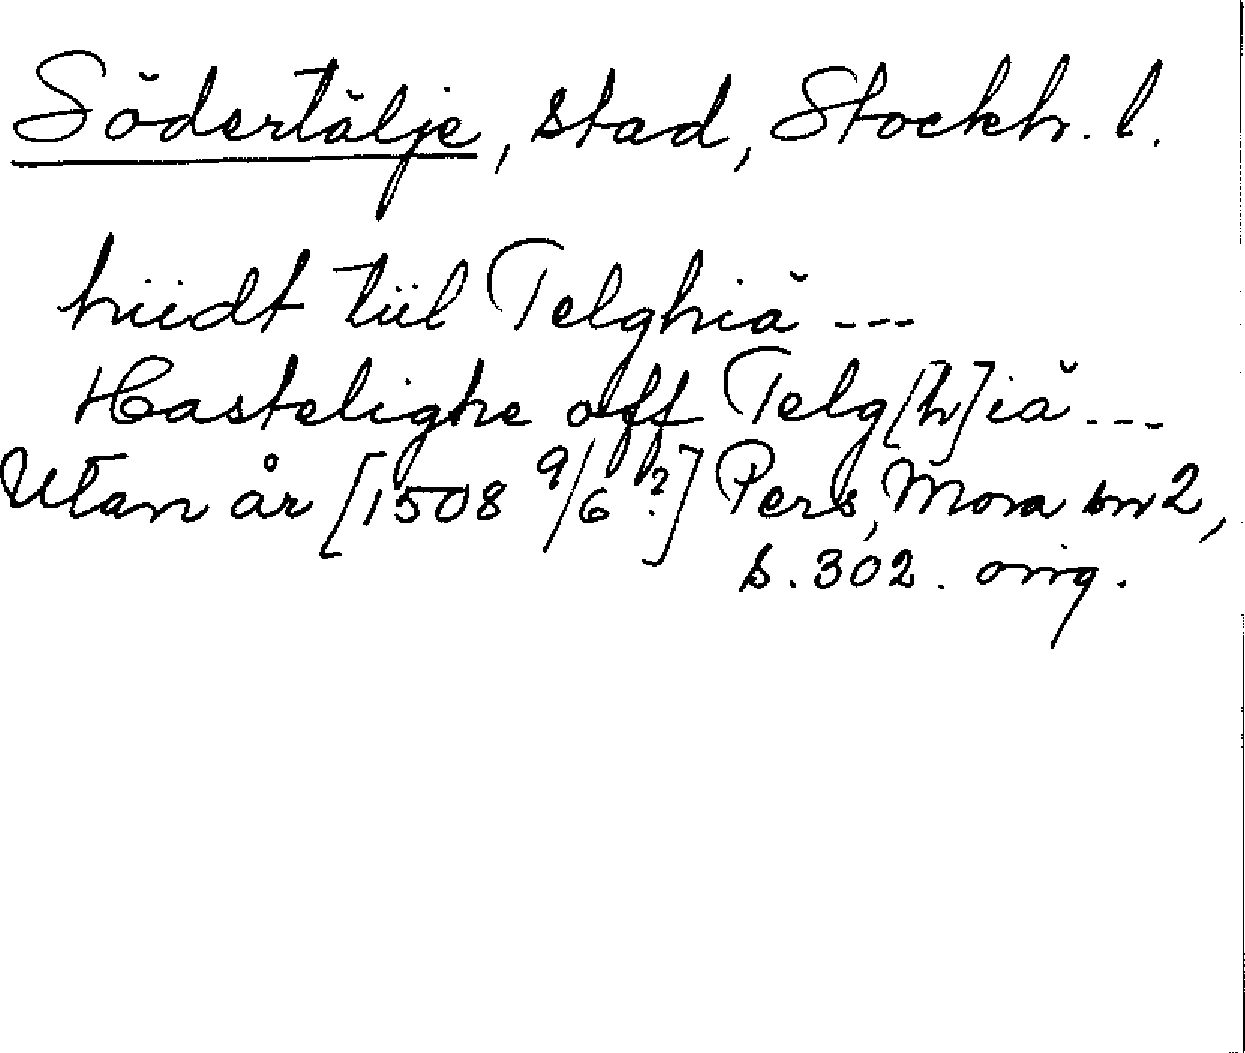 Södertälje, stad, Stockh. l.
hiidt tiil Telghiä ---
Hastelighe aff Telg[h]iä ---
Utan år [1508 9/6 ?] Pers, Mora bm 2,
s. 302. orig.